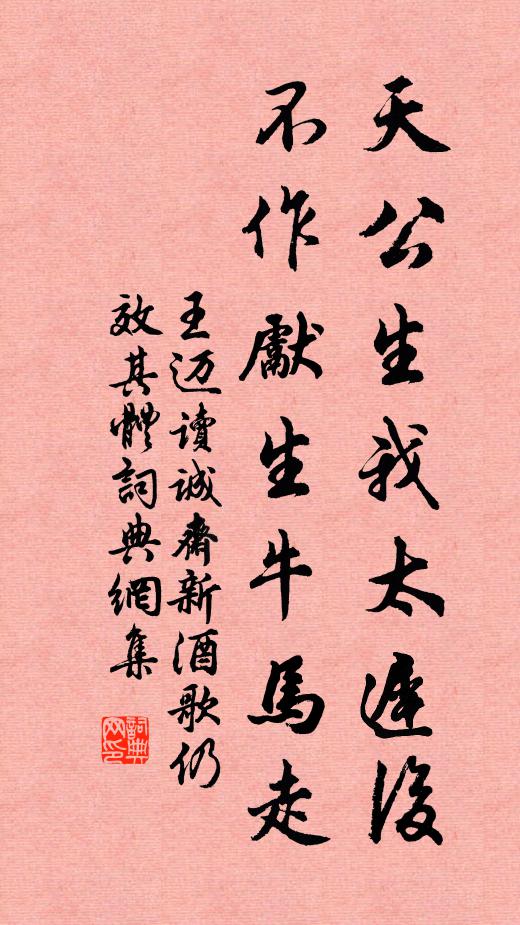 天公生我太遲後
不作獻生牛馬走
王迈讀誠齋新酒歌仍
效其體詞典網集
詞典网印